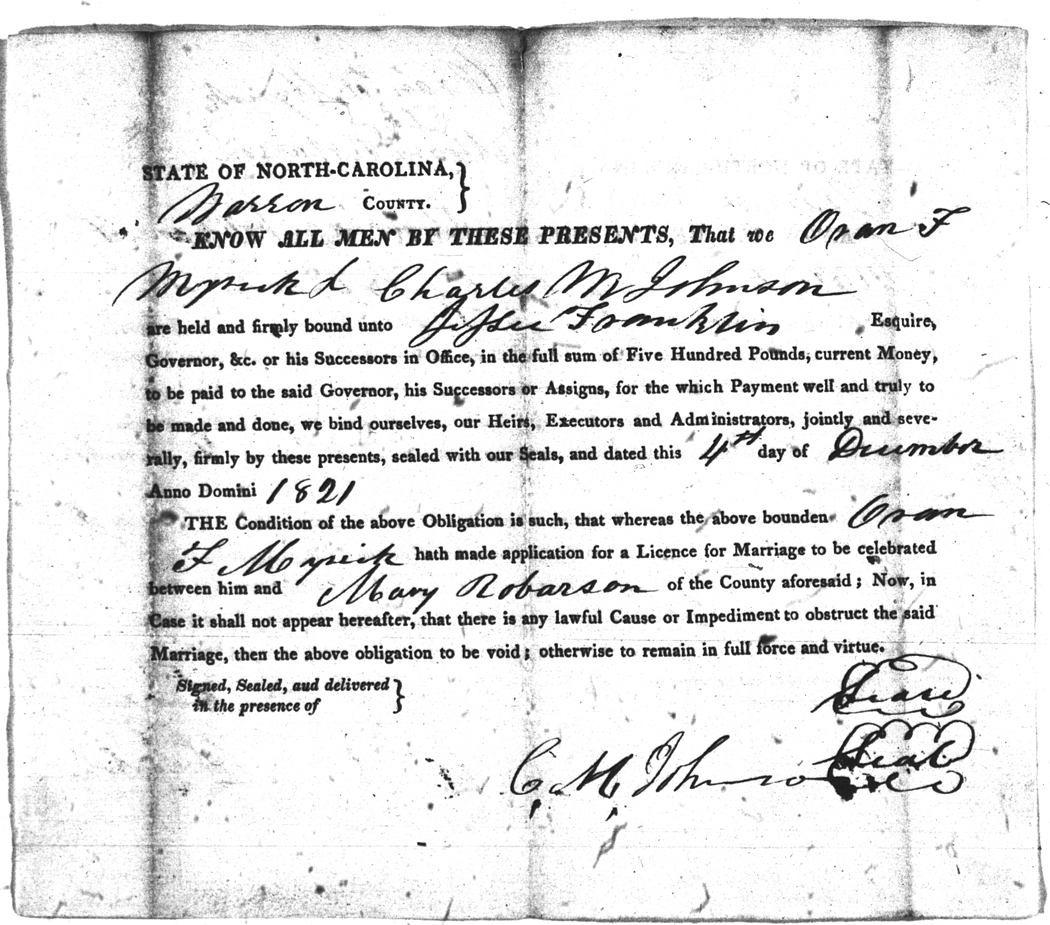 STATE OF NORTH-CAROLINA,}
Warren COUNTY.
KNOW ALL MEN BY THESE PRESENTS, That we Oran F
Myrick & Charles M Johnson
are held and firmly bound unto Jesse Franklin Esquire,
Governor, &c. or his Successors in Office, in the full sum of Five Hundred Pounds, current Money,
to be paid to the said Governor, his Successors or Assigns, for the which Payment well and truly to
be made and done, we bind ourselves, our Heirs, Executors and Administrators, jointly and seve-
rally, firmly by these presents, sealed with our Seals, and dated this 4th day of December
Anno Domini 1821
THE Condition of the above Obligation is such, that whereas the above bounden Oran
F Myrick hath made application for a Licence for Marriage to be celebrated
between him and Mary Robarson of the County aforesaid; Now, in
Case it shall not appear hereafter, that there is any lawful Cause or Impediment to obstruct the said
Marriage, then the above obligation to be void; otherwise to remain in full force and virtue.
Signed, Sealed, aud delivered }
in the presence of
Seal
C. M. Johnson Seal